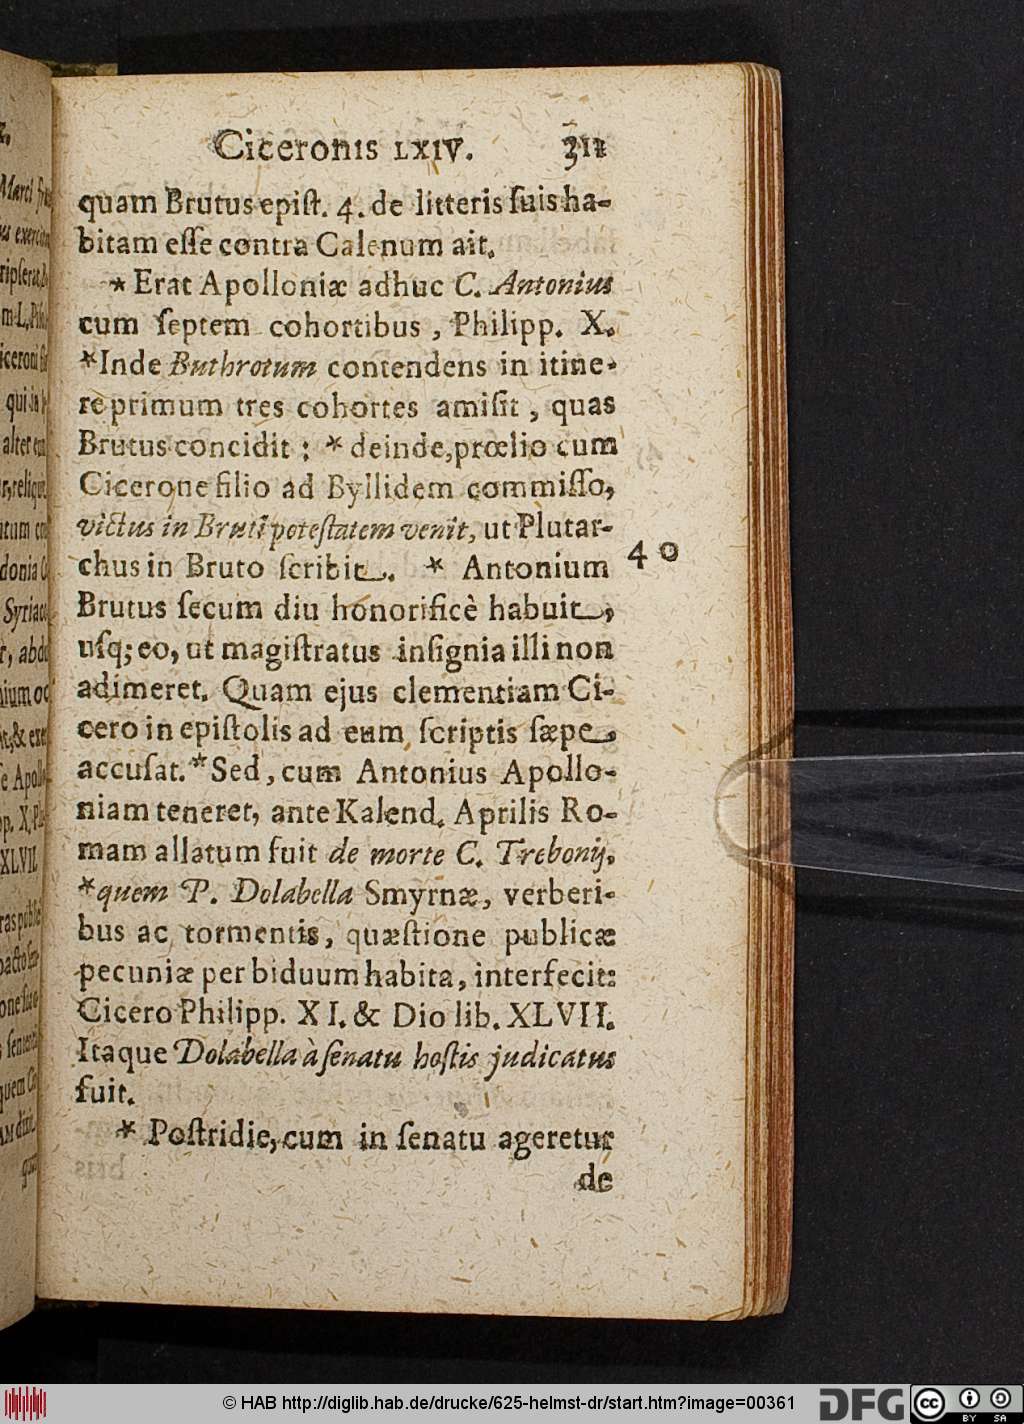 Ciceronis LXIV. 311
quam Brutus epiſt. 4. de litteris ſuis ha-
bitam eſſe contra Calenum ait.
* Erat Apolloniæ adhuc C. Antonius
cum ſeptem cohortibus, Philipp. X.
*Inde Buthrotum contendens in itine-
re primum tres cohortes amiſit, quas
Brutus concidit; * deinde, prœlio cum
Cicerone filio ad Byllidem commiſſo,
victus in Bruti poteſtatem venit, ut Plutar-
chus in Bruto ſcribit. * Antonium
40
Brutus ſecum diu honorificè habuit,
uſq; eo, ut magiſtratus inſignia illi non
adimeret. Quam ejus clementiam Ci-
cero in epiſtolis ad eum ſcriptis ſæpe
accuſat. *Sed, cum Antonius Apollo-
niam teneret, ante Kalend. Aprilis Ro-
mam allatum fuit de morte C. Trebonij,
*quem P. Dolabella Smyrnæ, verberi-
bus ac tormentis, quæſtione publicæ
pecuniæ per biduum habita, interfecit:
Cicero Philipp. XI. & Dio lib. XLVII.
Itaque Dolabella à ſenatu hoſtis judicatus
fuit.
* Poſtridie, cum in ſenatu ageretur
de
© HAB http://diglib.hab.de/drucke/625-helmst-dr/start.htm?image=00361
DFG
cc
BY SA